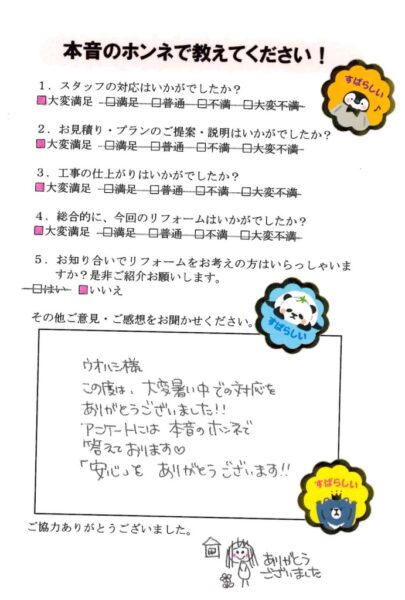 本音のホンネで教えてください！
すばらしい
１．スタッフの対応はいかがでしたか？
■大変満足 □満足 □普通 □不満 □大変不満
２．お見積り・プランのご提案・説明はいかがでしたか？
■大変満足 □満足 □普通 □不満 □大変不満
３．工事の仕上がりはいかがでしたか？
■大変満足 □満足 □普通 □不満 □大変不満
４．総合的に、今回のリフォームはいかがでしたか？
■大変満足 □満足 □普通 □不満 □大変不満
５．お知り合いでリフォームをお考えの方はいらっしゃいま
すか？是非ご紹介お願いします。
□はい ■いいえ
すばらしい
その他ご意見・ご感想をお聞かせください。
ウオハシ様
この度は、大変暑い中での対応を
ありがとうございました!!
アンケートには 本音のホンネで
答えております♡
「安心」を ありがとうございます!!
すばらしい
ご協力ありがとうございました。
ありがとう
ございました